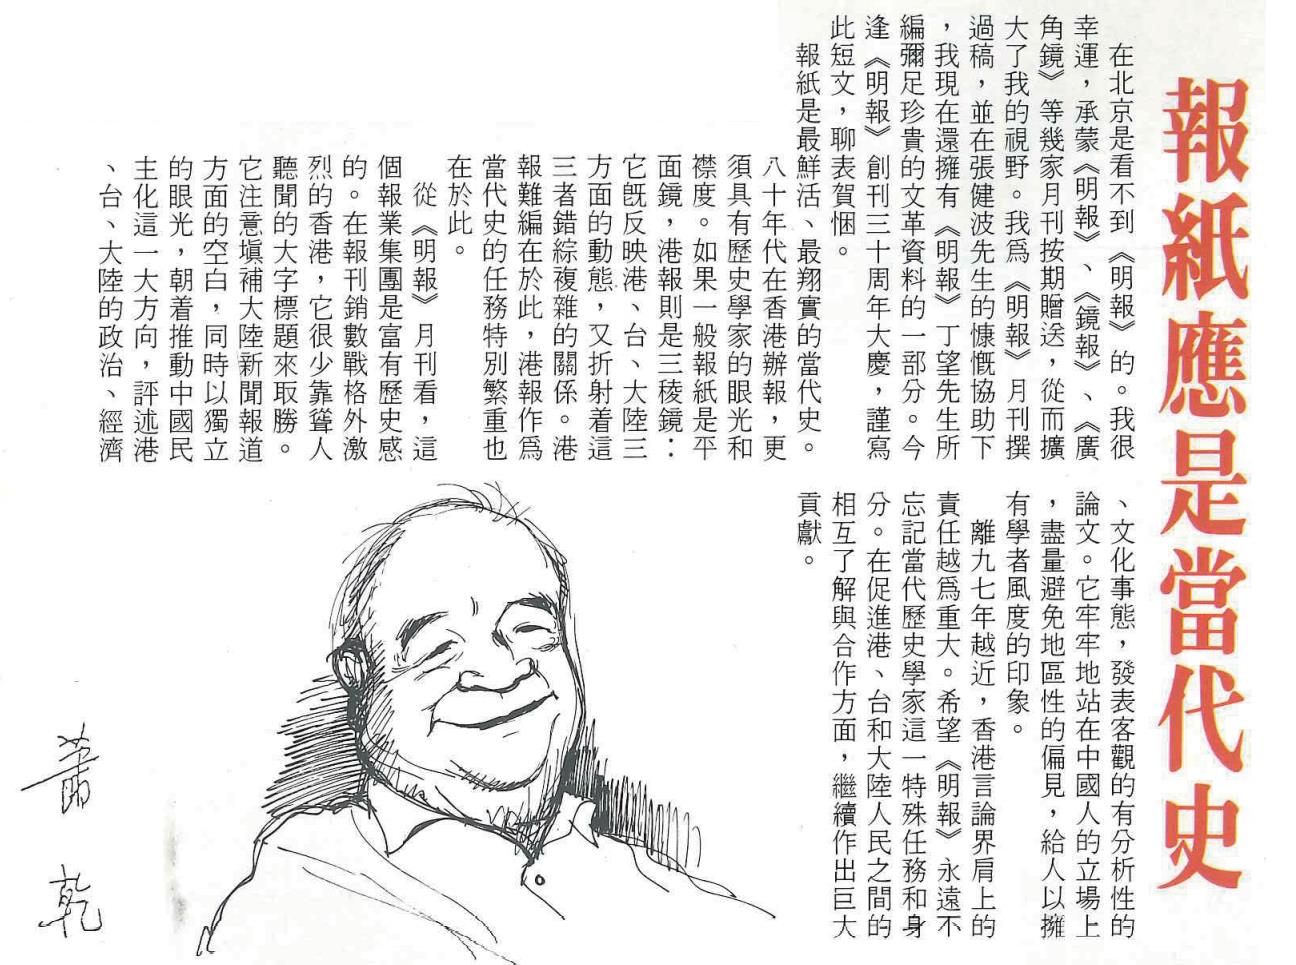 報紙應是當代史
在北京是看不到《明報》的。我很
幸運，承蒙《明報》、《鏡報》、《廣
角鏡》等幾家月刊按期贈送，從而擴
大了我的視野。我爲《明報》月刊撰
過稿，並在張健波先生的慷慨協助下
，我現在還擁有《明報》丁望先生所
編彌足珍貴的文革資料的一部分。今
逢《明報》創刊三十周年大慶，謹寫
此短文，聊表賀悃。
報紙是最鮮活、最翔實的當代史。
八十年代在香港辦報，更
須具有歷史學家的眼光和
襟度。如果一般報紙是平
面鏡，港報則是三稜鏡：
它旣反映港、台、大陸三
方面的動態，又折射着這
三者錯綜複雜的關係。港
報難編在於此，港報作爲
當代史的任務特別繁重也
在於此。
從《明報》月刊看，這
個報業集團是富有歷史感
的。在報刊銷數戰格外激
烈的香港，它很少靠聳人
聽聞的大字標題來取勝。
它注意塡補大陸新聞報道
方面的空白，同時以獨立
的眼光，朝着推動中國民
主化這一大方向，評述港
、台、大陸的政治、經濟
、文化事態，發表客觀的有分析性的
論文。它牢牢地站在中國人的立場上
，盡量避免地區性的偏見，給人以擁
有學者風度的印象。
離九七年越近，香港言論界肩上的
責任越爲重大。希望《明報》永遠不
忘記當代歷史學家這一特殊任務和身
分。在促進港、台和大陸人民之間的
相互了解與合作方面，繼續作出巨大
貢獻。
蕭乾